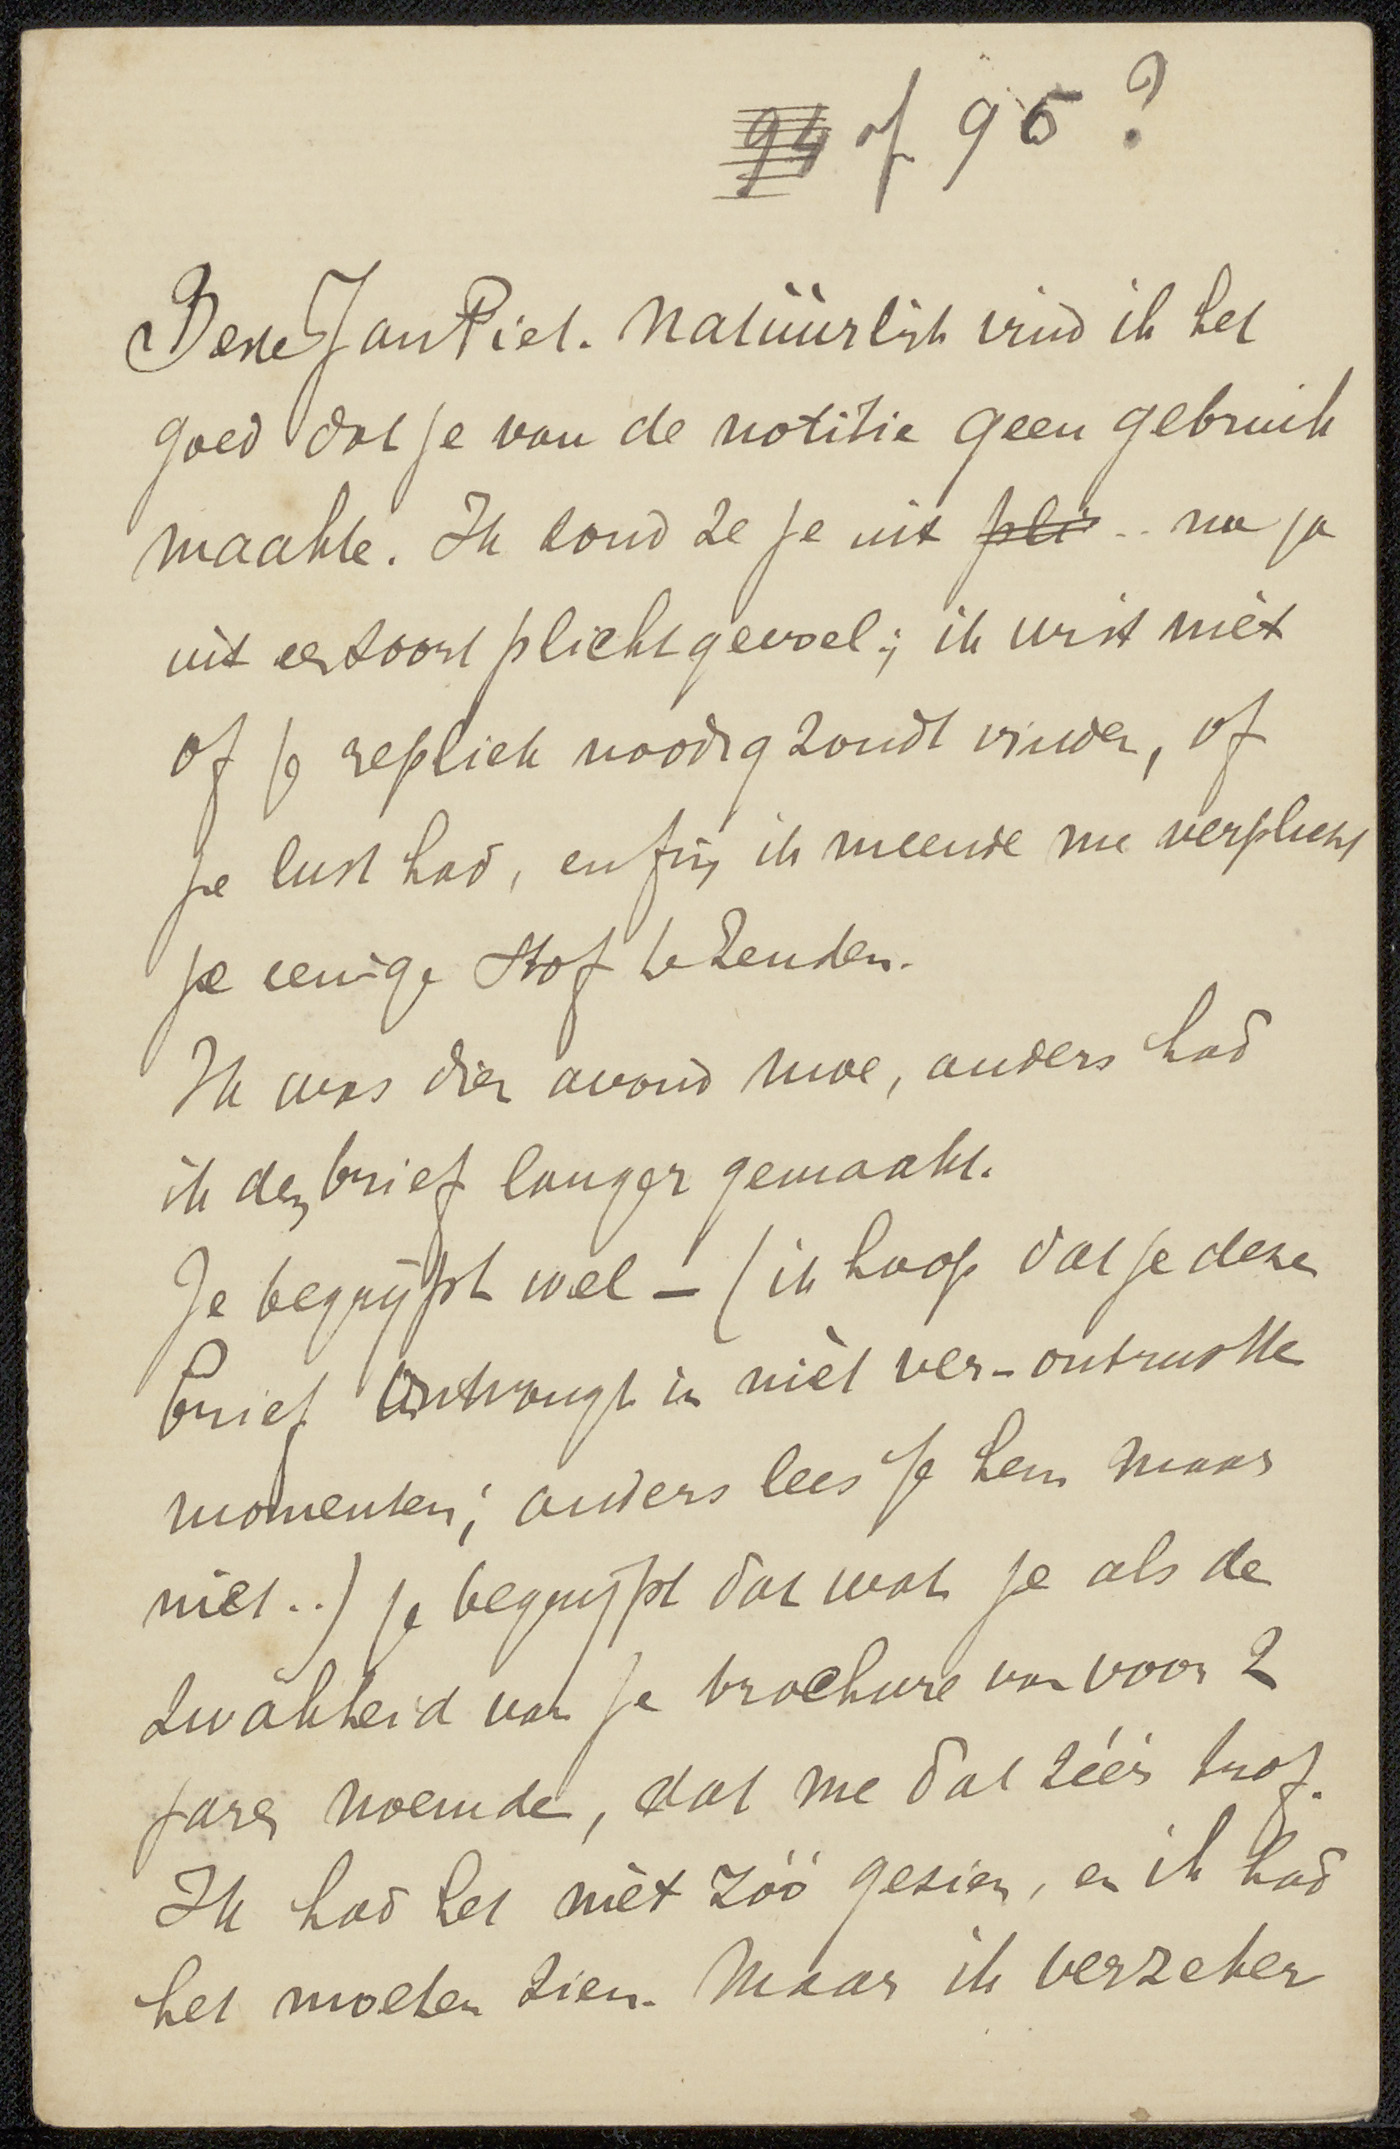 94 of 95 ?
Beste Jan Piet. Natuurlijk vind ik het
goed dat je van de notitie geen gebruik
maakte. Ik zond ze je uit pli .. nu ja
uit een soort plichtgevoel; ik wist niet
of je repliek noodig zoudt vinden, of
je lust had, enfin, ik meende me verplicht
je eenige stof te zenden.
Ik was dien avond moe, anders had
ik den brief langer gemaakt.
Je begrijpt wel – (ik hoop dat je dezen
brief ontvangt in niet ver-ontrustte
momenten; anders lees je hem maar
niet..) je begrijpt dat wat je als de
zwakheid van je brochure van voor 2
jaren noemde, dat me dat zéér trof.
Ik had het niet zóó gezien, en ik had
het moeten zien. Maar ik verzeker